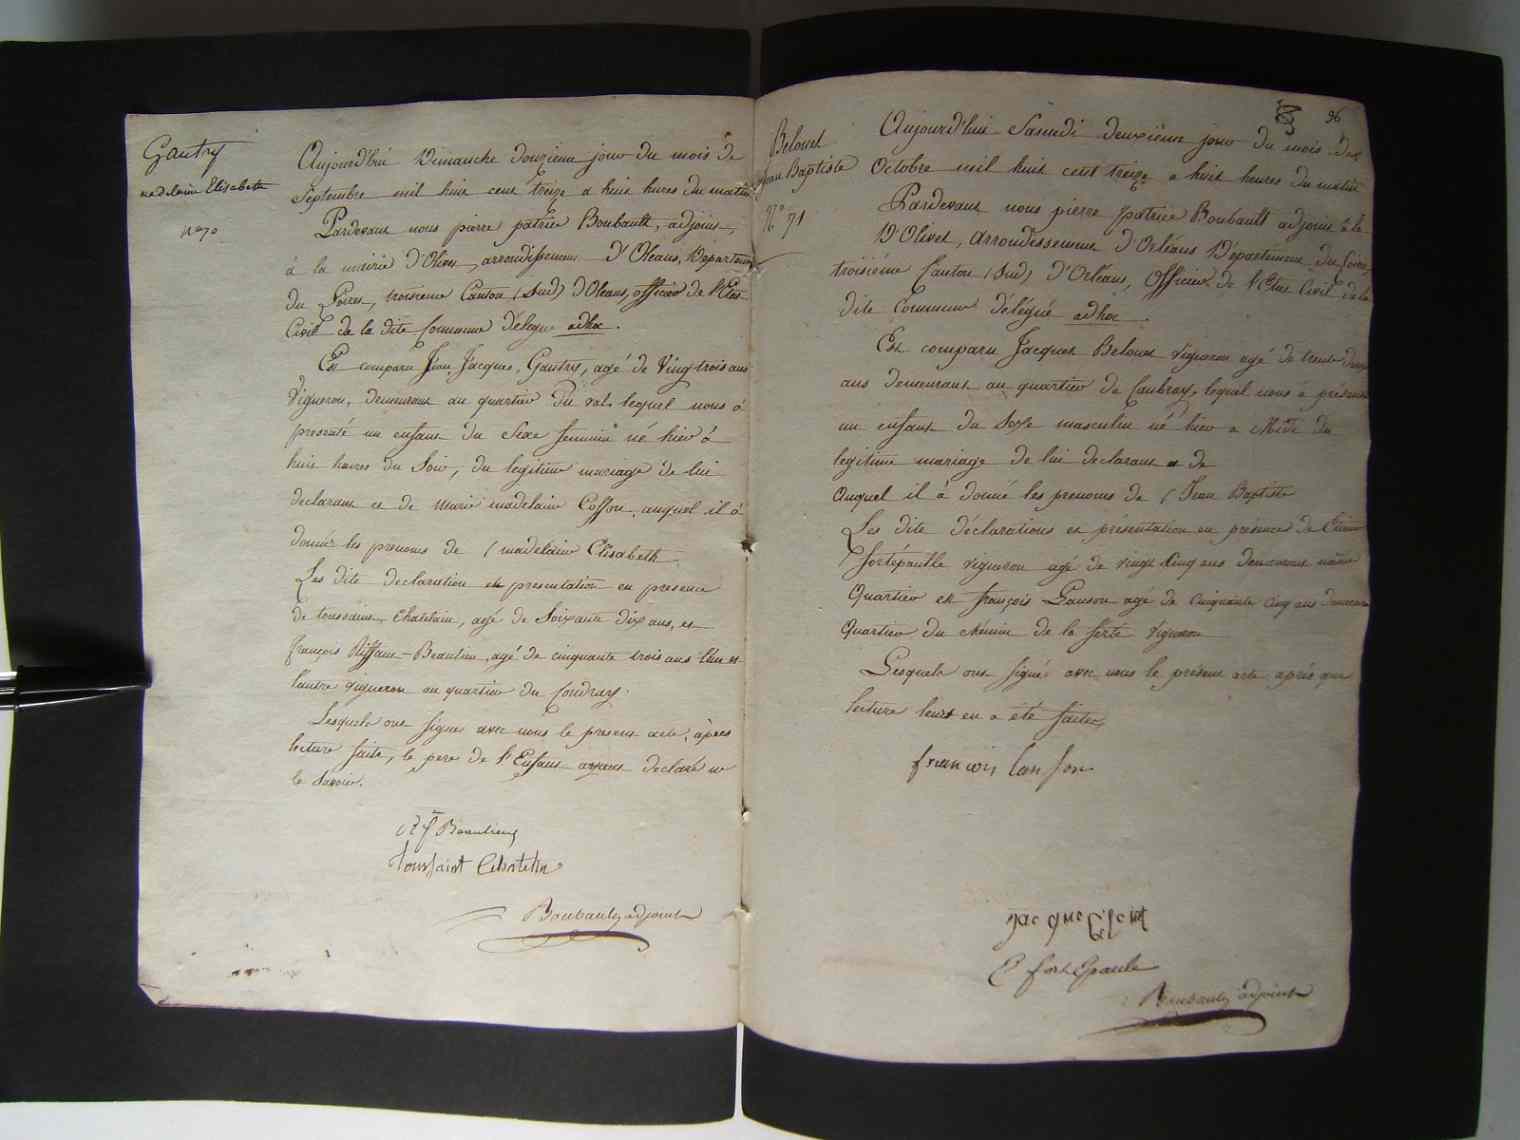 Gautry
madelaine Elisabeth
N° 70
Aujourd'hui Dimanche douzieme jour du mois de
Septembre mil huit cent treize a huit hures du matin
Pardevant nous pierre patrice Boubault, adjoint,
à la mairie d'Olivet, arrondissement d'Oleans, Departem
du Loiret, troisieme Canton (Sud) d'Oleans, officier de l'Etat
Civil de la dite Commune délegué adhoc.
Est comparu Jean Jacques Gautry, agé de Vingt trois ans
Vigneron, demeurant au quartier du val lequel nous à
presenté un enfant du Sexe feminin né hier à
huit heures du Soir, du legitime mariage de lui
declarant et de Marie madelaine Cosson, auquel il à
donner les prenoms de (madelaine Elisabeth
Les dite declaration et presentation en presence
de toussaint Chatelain, agé de Soixante dix ans, et
françois Riffaut-Beaulieu, agé de cinquante trois ans l'un et
l'autre vigneron au quartier du Coudray.
Lesquels ont signé avec nous le present acte, àpres
lecture faite, le pere de l'Enfant ayant declaré ne
le Savoir.
Beaulieu
toussaint Chatelin
Boubault adjoint
96
Belouet
Jean Baptiste
N° 71
Aujourd'hui Samedi deuxieme jour du mois de
Octobre mil huit cent treize a huit heures du matin
Pardevant nous pierre patrice Boubault adjoint à la
D'Olivet, arrondissement d'Orléans Département du Loiret,
troisieme Canton (Sud) d'Orléans, Officier de l'Etat Civil de la
dite Commune délégué adhoc.
Est comparu Jacques Belouet vigneron agé de trente deux
ans demeurant au quartier de Caubray, lequel nous à présenté
un enfant du Sexe masculin né hier a Midi du
legitime mariage de lui declarant et de
auquel il à donné les prenoms de (Jean Baptiste
Les dite déclarations et présentation en présence de Etienne
fortépaulle vigneron agé de vingt cinq ans demeurant même
Quartier et françois Lanson agé de cinquante cinq ans demeurant
Quartier du chemin de la ferté vigneron
Lesquels ont signé avec nous le présent acte après que
lecture leurs en a été faite,
francois lanson
Jacque
E fortEpaule
Boubault adjoint